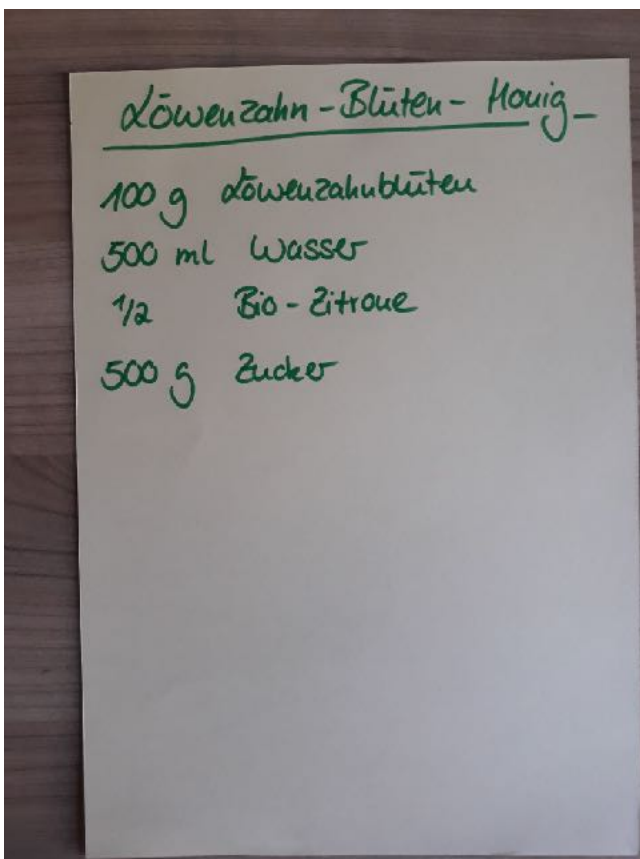 Löwenzahn-Blüten-Honig
100 g Löwenzahnblüten
500 ml Wasser
1/2 Bio-Zitrone
500 g Zucker